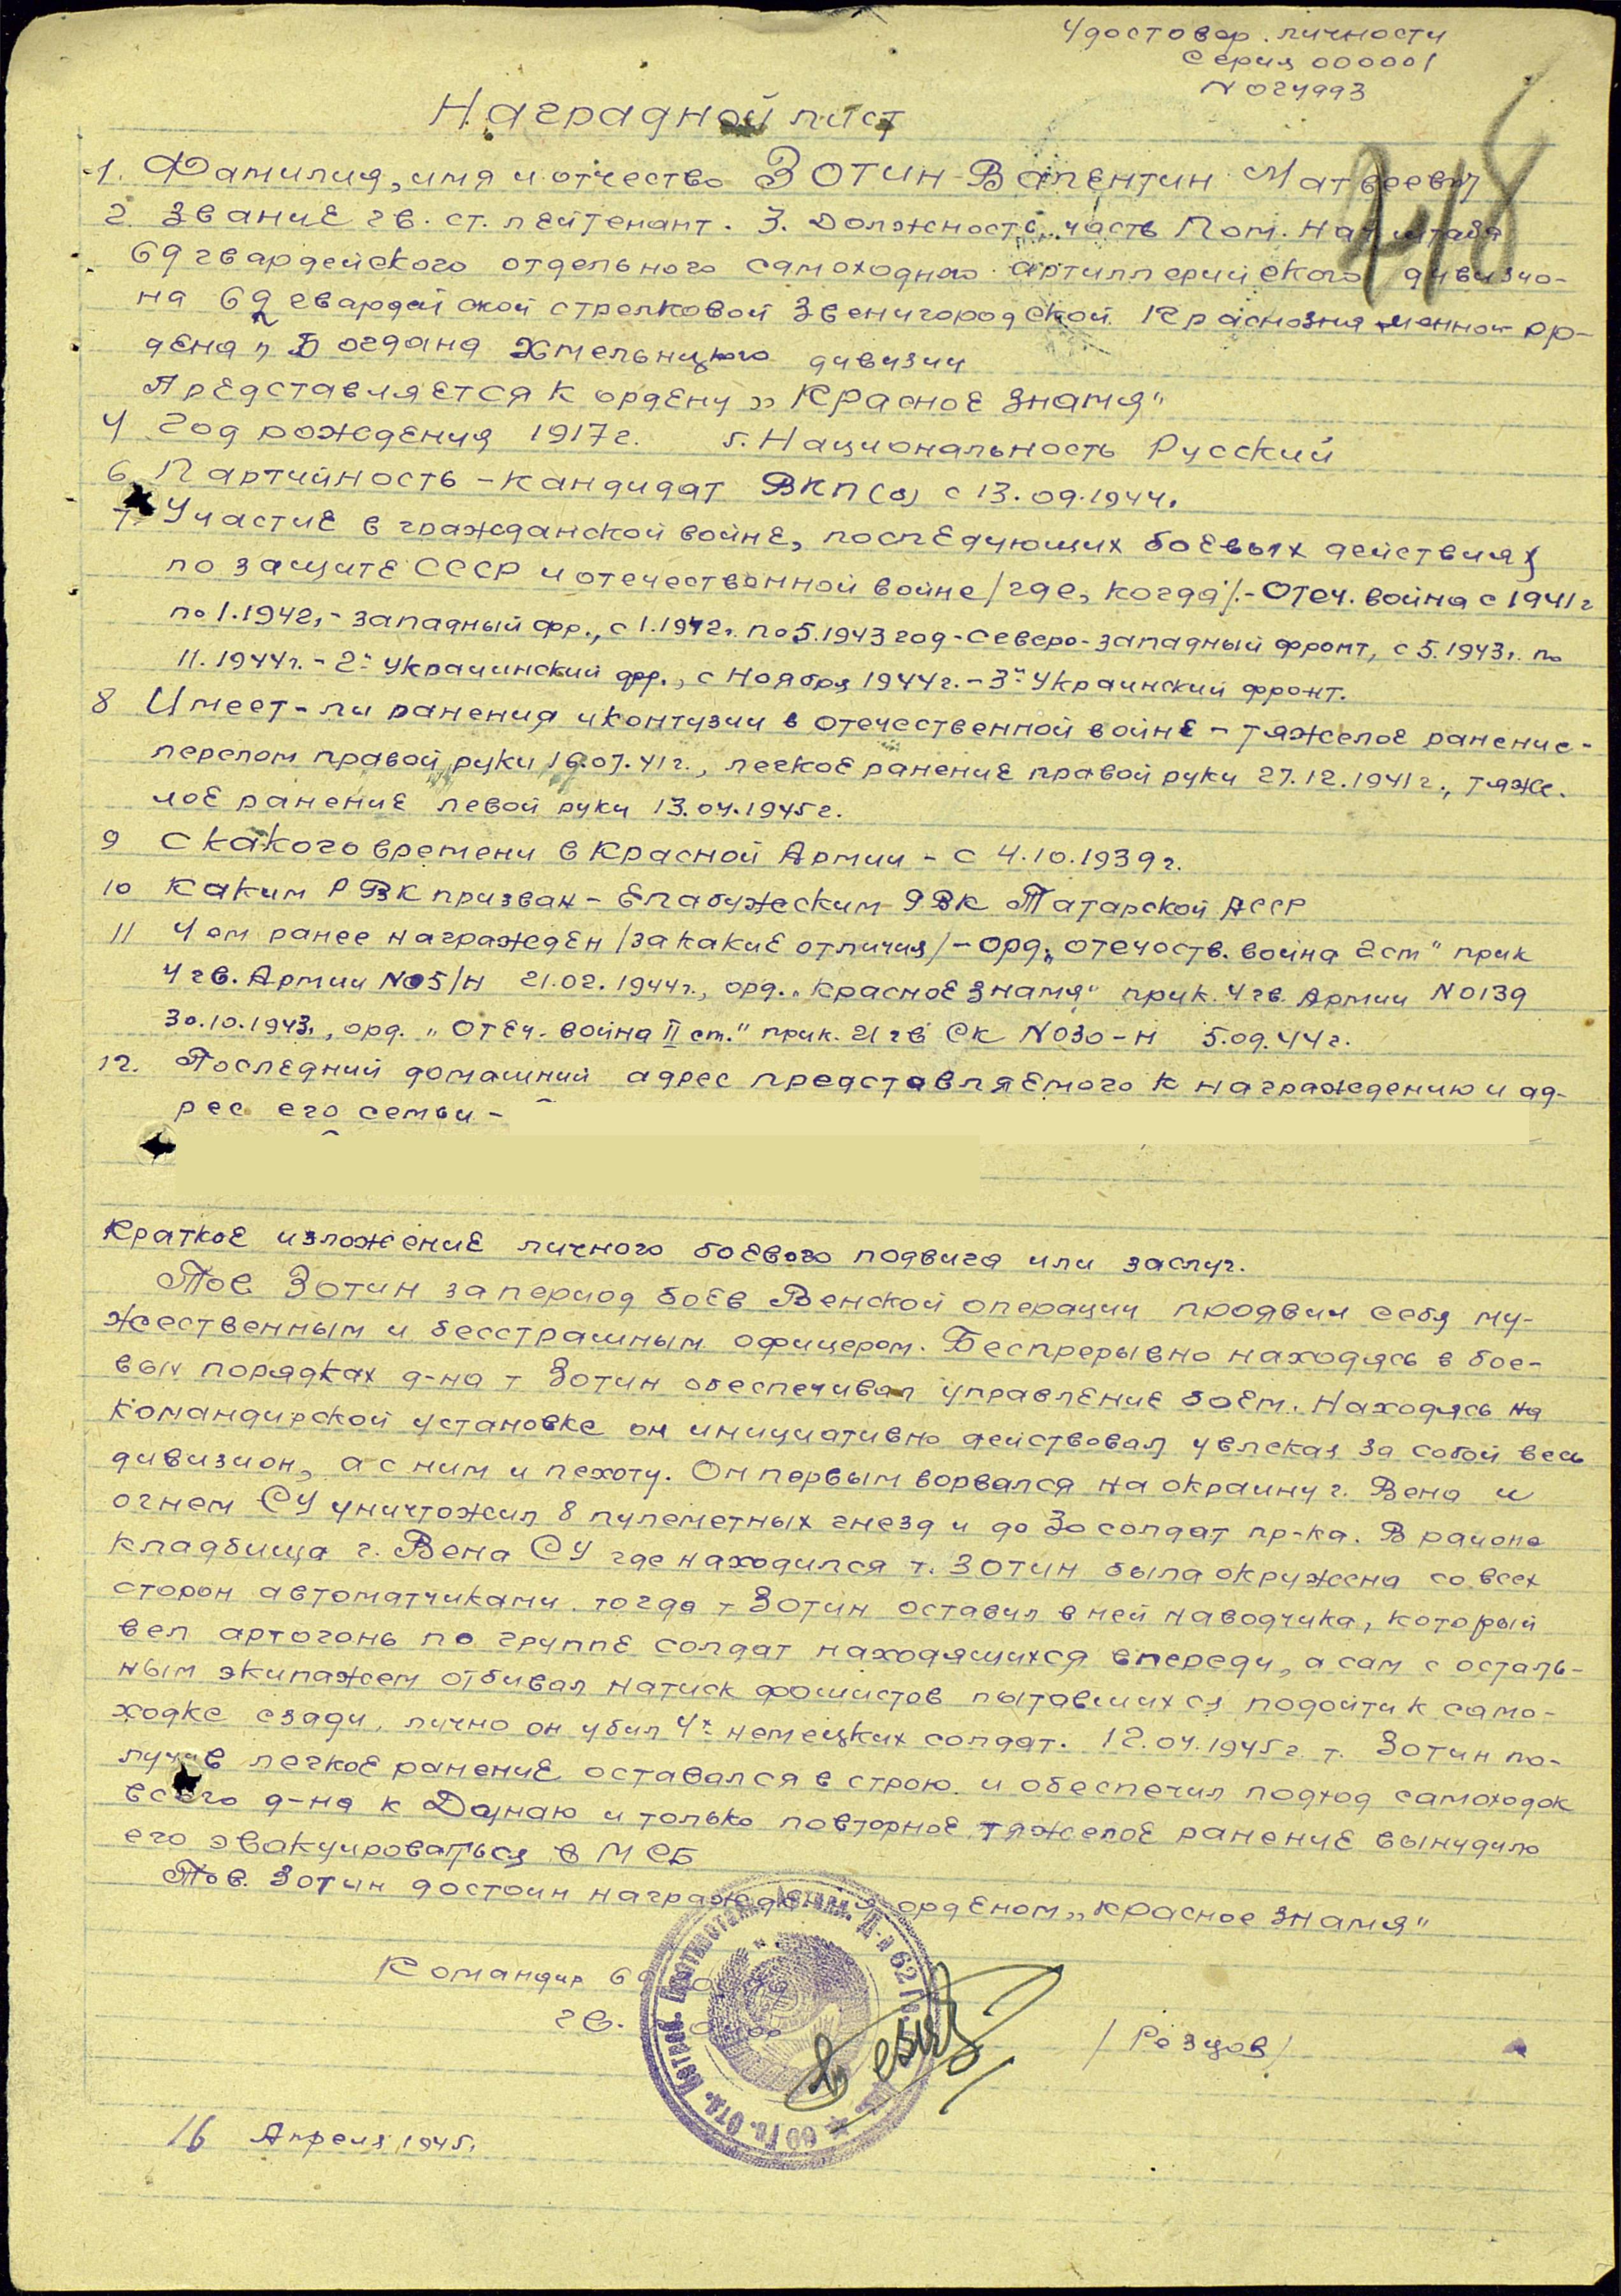 Удостовер. личности
Серия 000001
N 024993
Наградной лист
1. Фамилия, имя и отчество Зотин Валентин Матвеевич
2. Звание гв. ст. лейтенант. 3. Должность, часть Пом. Нач. штаба
69 гвардейского отдельного самоходного артиллерийского дивизио-
на 62 гвардейской стрелковой Звенигородской Краснознаменной ор-
дена „Богдана Хмельницкого дивизии
Представляется к ордену „Красное Знамя"
4 Год рождения 1917г. 5. Национальность Русский
6. Партийность - кандидат ВКП(б) с 13.09.1944.
7. Участие в гражданской войне, последующих боевых действиях
по защите СССР и отечественной войне /где, когда/.- Отеч. война с 1941г
по 1.1942, - Западный фр., с 1.1942г. по 5.1943 год - Северо-западный фронт, с 5.1943г. по
11.1944г. - 2й Украинский фр., с Ноября 1944г. - 3й Украинский фронт.
8 Имеет-ли ранения и контузии в отечественной войне - тяжелое ранение -
перелом правой руки 16.07.41г., легкое ранение правой руки 27.12.1941г., тяже.
лое ранение левой руки 13.04.1945г.
9 С какого времени в Красной Армии - с 4.10.1939г.
10 Каким РВК призван - Елабужским РВК Татарской АССР
11 Чем ранее награжден /за какие отличия/ - орд. „отечеств. война 2 ст" прик
4 гв. Армии №5/н 21.02.1944г., орд. „Красное Знамя" прик. 4 гв. Армии N 013д
30.10.1943г., орд. „Отеч. война II ст." прик. 21 гв СК N 030-н 5.09.44г.
12. Последний домашний адрес представляемого к награждению и ад-
рес его семьи -
Краткое изложение личного боевого подвига или заслуг.
Тов Зотин за период боев Венской операции проявил себя му-
жественным и бесстрашным офицером. Беспрерывно находясь в бое-
вых порядках д-на т Зотин обеспечивал управление боем. Находясь на
командирской установке он инициативно действовал увлекая за собой весь
дивизион, а с ним и пехоту. Он первым ворвался на окраину г. Вена и
огнем СУ уничтожил 8 пулеметных гнезд и до 30 солдат пр-ка. В районе
кладбища г. Вена СУ где находился т. Зотин была окружена со всех
сторон автоматчиками. тогда т Зотин оставил в ней наводчика, который
вел артогонь по группе солдат находящихся впереди, а сам с осталь-
ным экипажем отбивал натиск фошистов пытавшихся подойти к само-
ходке сзади, лично он убил 4х немецких солдат. 12.04.1945г. т. Зотин по-
лучив легкое ранение оставался в строю и обеспечил подход самоходок
всего д-на к Дунаю и только повторное тяжелое ранение вынудило
его эвакуироваться в МСБ
Тов. Зотин достоин награждения орденом „Красное Знамя"
Командир 69
гв.
/Резцов/
16 Апреля 1945г.